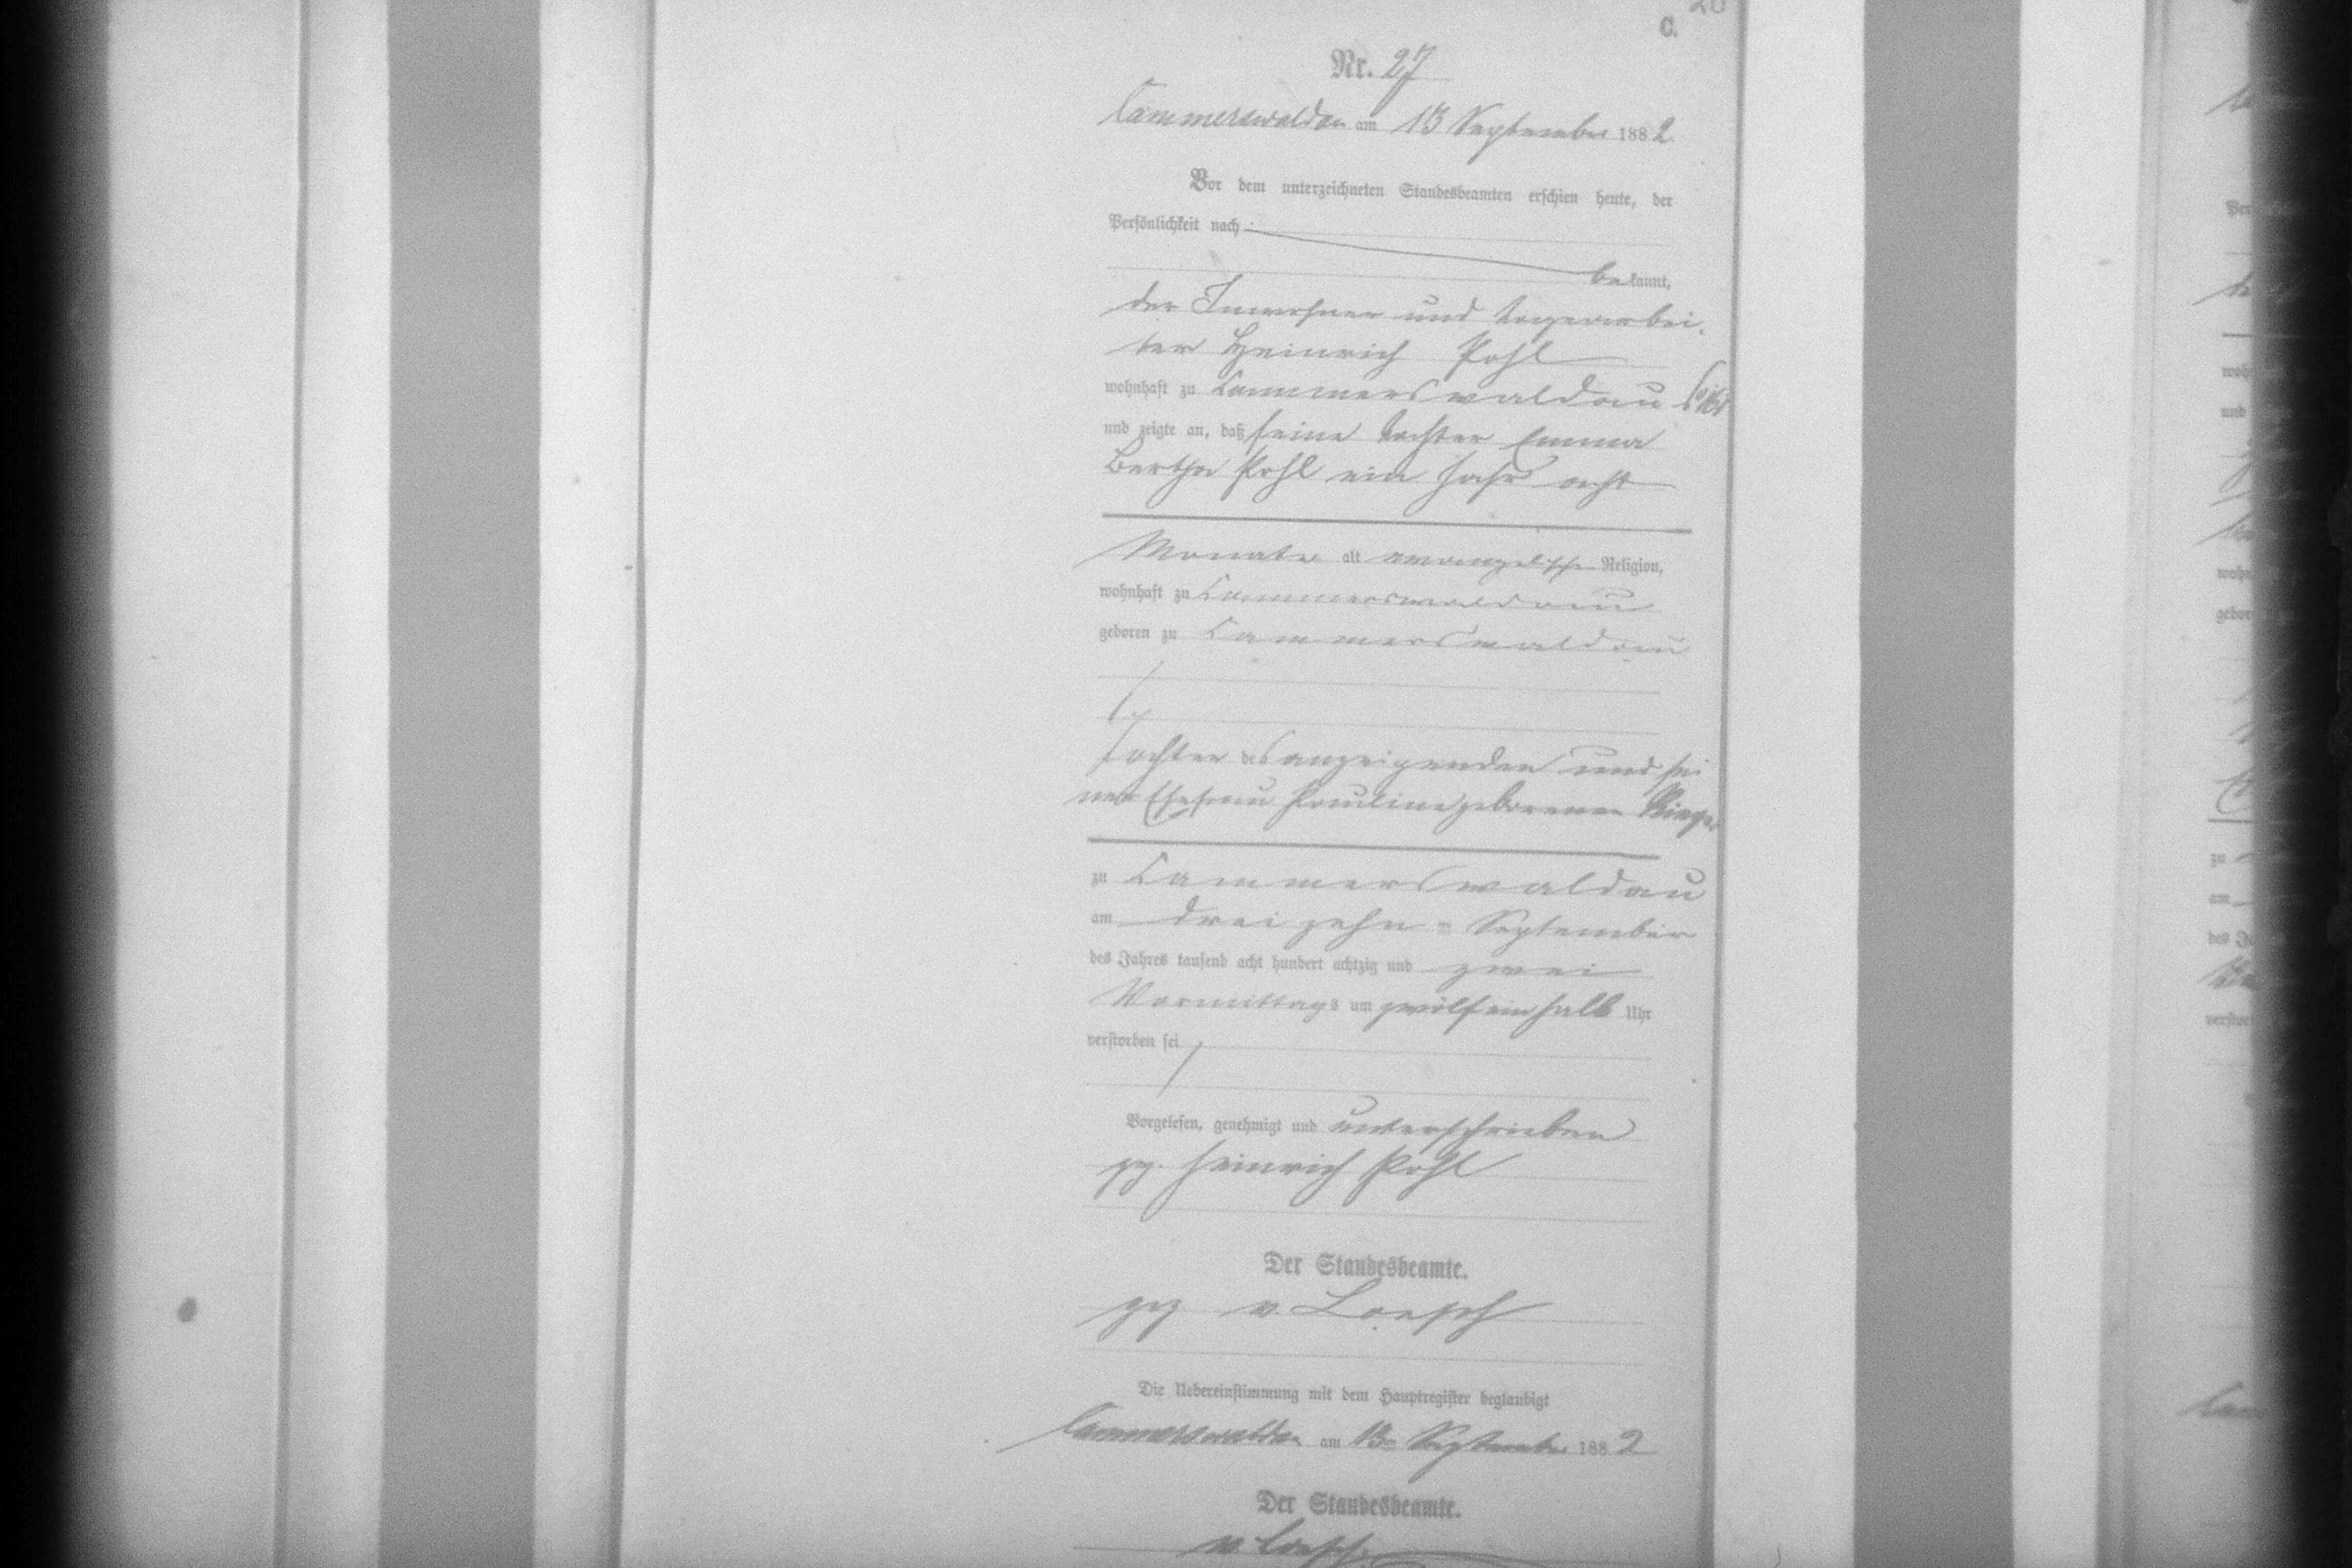 C.
Nr. 27
Cammerswaldau am 13 September 1882
Vor dem unterzeichneten Standesbeamten erschien heute, der
Persönlichkeit nach
bekannt,
der Inwohner und Tagearbei-
ter Heinrich Pohl
wohnhaft zu Cammerswaldau
und zeigte an, daß seine Tochter Emma
Bertha Pohl ein Jahr acht
Monate alt evangelische Religion,
wohnhaft zu Cammerswaldau
geboren zu Cammerswaldau
Tochter des anzeigenden und sei
ner Ehefrau Pauline geborenen
zu Cammerswaldau
am dreizehn ten September
des Jahres tausend acht hundert achtzig und zwei
Vormittags um zwölfeinhalb Uhr
verstorben sei
Vorgelesen, genehmigt und unterschrieben
gez. Heinrich Pohl
Der Standesbeamte.
gez v. Loesch
Die Uebereinstimmung mit dem Hauptregister beglaubigt
Cammerswaldau am 13ten September 1882
Der Standesbeamte.
v. Loesch